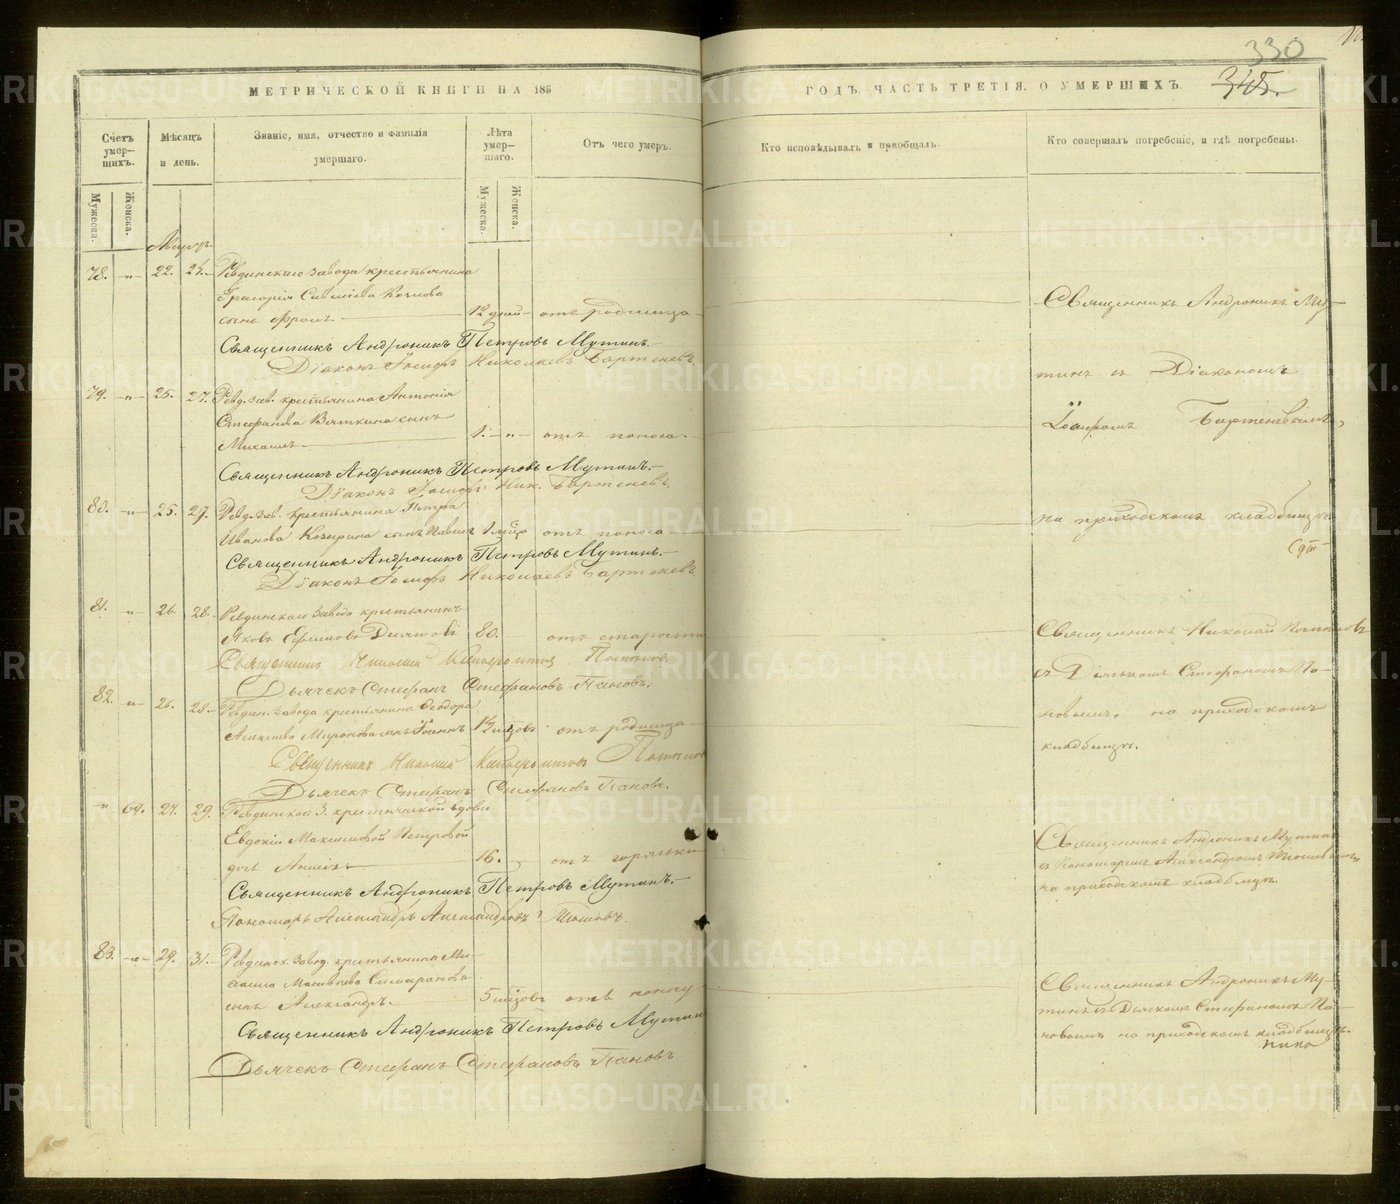 330
345.
МЕТРИЧЕСКОЙ КНИГИ НА 185
ГОДЪ, ЧАСТЬ ТРЕТІЯ, О УМЕРШИХЪ.
Счетъ умер-
шихъ.
Мужеска.
Женска.
Мѣсяцъ
и день.
Званіе, имя, отчество и фамилія
умершаго.
Лѣта
умер-
шаго.
Мужеска.
Женска.
Отъ чего умеръ.
Кто исповѣдывалъ и пріобщалъ.
Кто совершалъ погребеніе, и гдѣ погребены.
Августъ.
78. -"- 22. 24. Ревдинскаго Завода крестьянина
Григорія
сынъ Фролъ. 12 дней отъ родимца
Священникъ Андроникъ Петровъ Мутинъ.
Діаконъ Іосифъ Николаевъ Бартеневъ
Священникъ Андроникъ Му-
тинъ съ Діакономъ
Іосифомъ Бартеневымъ,
на приходскомъ кладбищѣ
79. -"- 25. 27. Ревд. зав. крестьянина Антонія
Стефанова Вяткина сынъ
Михаилъ 1. -"- отъ поноса.
Священникъ Андроникъ Петровъ Мутинъ.
Діаконъ Іосифъ Ник. Бартеневъ.
80. -"- 25. 27. Ревд. зав. крестьянина Петра
Иванова сынъ Павелъ 1 отъ поноса
Священникъ Андроникъ Петровъ Мутинъ.
Діаконъ Іосифъ Николаевъ Бартеневъ
81. " 26. 28. Ревдинскаго Завода крестьянинъ
Яковъ Ефимовъ 80. отъ старости
Священникъ Николай Попововъ
Дьячекъ Стефанъ Стефановъ Пановъ.
Священникъ Николай
съ Дьячкомъ Стефаномъ Па-
новымъ, на приходскомъ
кладбищѣ.
82. " 26. 28. Ревдин. завода крестьянина Ѳеодора
Миронова сынъ Іоаннъ отъ родимца
Священникъ Николай
Дьячекъ Стефанъ Стефановъ Пановъ.
" 69. 27. 29. Ревдинской З. крестьянской вдовы
Евдокіи Максимовой Петровой
дочь 16. отъ горячки
Священникъ Андроникъ Петровъ Мутинъ.
Пономарь Александръ Александровъ
Священникъ Андроникъ Мутинъ
съ Пономаремъ Александромъ
на приходскомъ кладбищѣ.
83. -"- 29. 31. Ревдинск. Завод. крестьянина Ми-
хаила Матвѣева
сынъ Александръ. 5 отъ поносу
Священникъ Андроникъ Петровъ Мутинъ
Дьячекъ Стефанъ Стефановъ Пановъ
Священникъ Андроникъ Му-
тинъ съ Дьячкомъ Стефаномъ Па-
новымъ на приходскомъ кладбищѣ.
METRIKI.GASO-URAL.RU